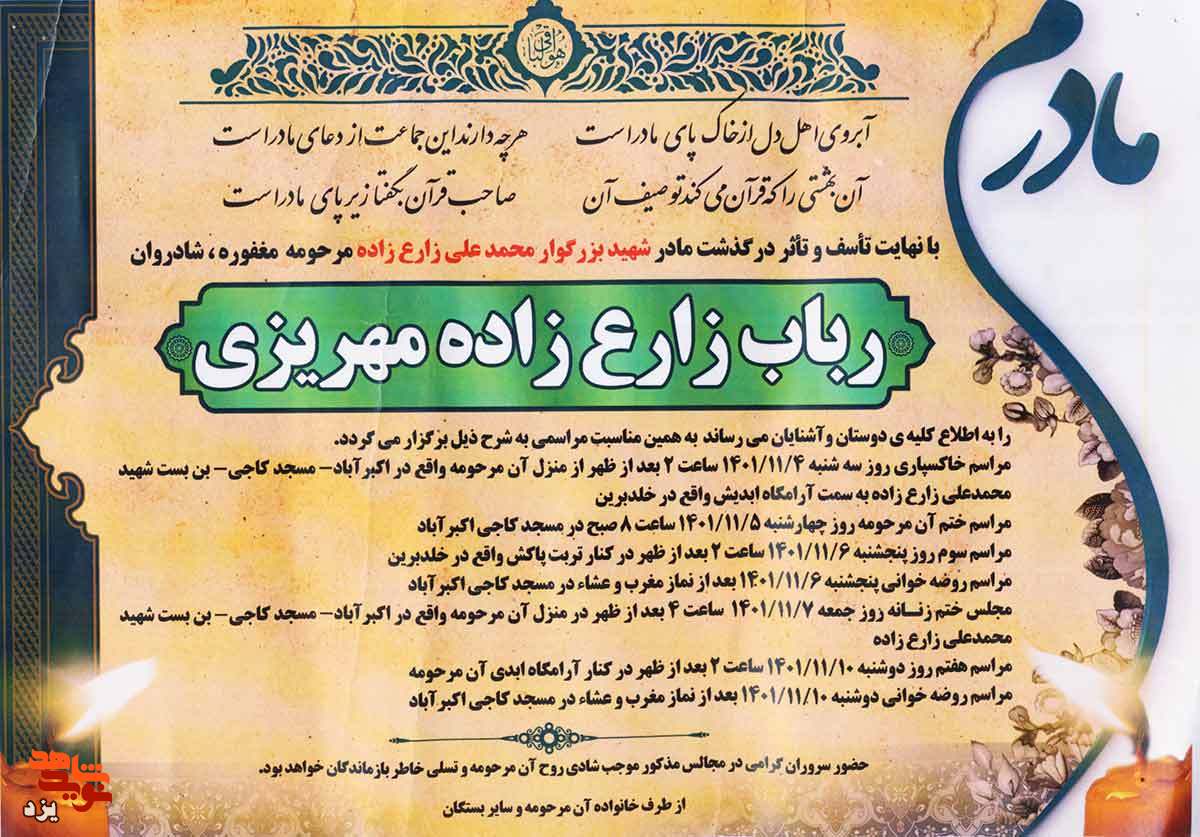 هوالباقی
مادرم
آبروی اهل دل از خاک پای مادر است هرچه دارند این جماعت از دعای مادر است
آن بهشتی را که قرآن می کند توصیف آن صاحب قرآن بگفتا زیر پای مادر است
با نهایت تأسف و تأثر درگذشت مادر شهید بزرگوار محمدعلی زارع زاده مرحومه مغفوره ، شادروان
رباب زارع زاده مهریزی
را به اطلاع کلیه ی دوستان وآشنایان می رساند به همین مناسبت مراسمی به شرح ذیل برگزار می گردد.
مراسم خاکسپاری روز سه شنبه ۱۴۰۱/۱۱/۴ ساعت ۲ بعد از ظهر از منزل آن مرحومه واقع در اکبرآباد– مسجد کاجی– بن بست شهید
محمدعلی زارع زاده به سمت آرامگاه ابدیش واقع در خلدبرین
مراسم ختم آن مرحومه روز چهارشنبه ۱۴۰۱/۱۱/۵ ساعت ۸ صبح در مسجد کاجی اکبرآباد
مراسم سوم روز پنجشنبه ۱۴۰۱/۱۱/۶ ساعت ۲ بعد از ظهر در کنار تربت پاکش واقع در خلدبرین
مراسم روضه خوانی پنجشنبه ۱۴۰۱/۱۱/۶ بعد از نماز مغرب و عشاء در مسجد کاجی اکبرآباد
مجلس ختم زنـانه روز جمعه ۱۴۰۱/۱۱/۷ ساعت ۴ بعد از ظهر در منزل آن مرحومه واقع در اکبرآباد– مسجد کاجی– بن بست شهید
محمدعلی زارع زاده
مراسم هفتم روز دوشنبه ۱۴۰۱/۱۱/۱۰ ساعت ۲ بعد از ظهر در کنار آرامگاه ابدی آن مرحومه
مراسم روضه خوانی دوشنبه ۱۴۰۱/۱۱/۱۰ بعد از نماز مغرب و عشاء در مسجد کاجی اکبرآباد
حضور سروران گرامی در مجالس مذکور موجب شادی روح آن مرحومه و تسلی خاطر بازماندگان خواهد بود.
از طرف خانواده آن مرحومه و سایر بستگان
نوید شاهد
یزد